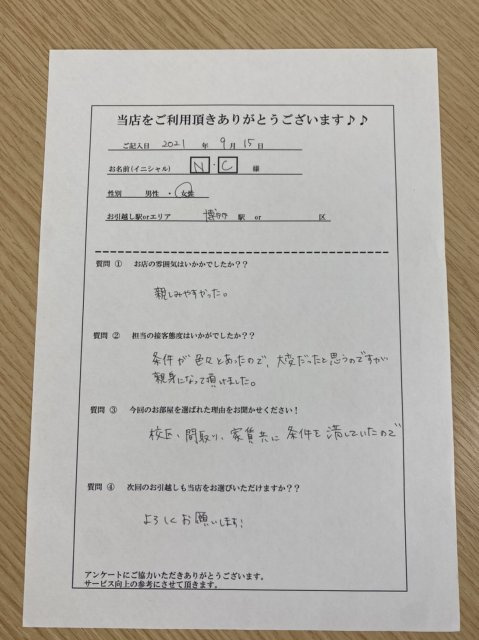 当店をご利用頂きありがとうございます♪♪
ご記入日 2021 年 9 月 15 日
お名前(イニシャル) N・C 様
性別 男性 ・ 女性
お引越し駅orエリア 博多 駅 or 区
質問 ① お店の雰囲気はいかかでしたか??
親しみやすかった。
質問 ② 担当の接客態度はいかがでしたか??
条件が色々とあったので、大変だったと思うのですが
親身になって頂けました。
質問 ③ 今回のお部屋を選ばれた理由をお聞かせください!
校区、間取り、家賃共に条件を満していたので
質問 ④ 次回のお引越しも当店をお選びいただけますか??
よろしくお願いします!
アンケートにご協力いただきありがとうございます。
サービス向上の参考にさせて頂きます。